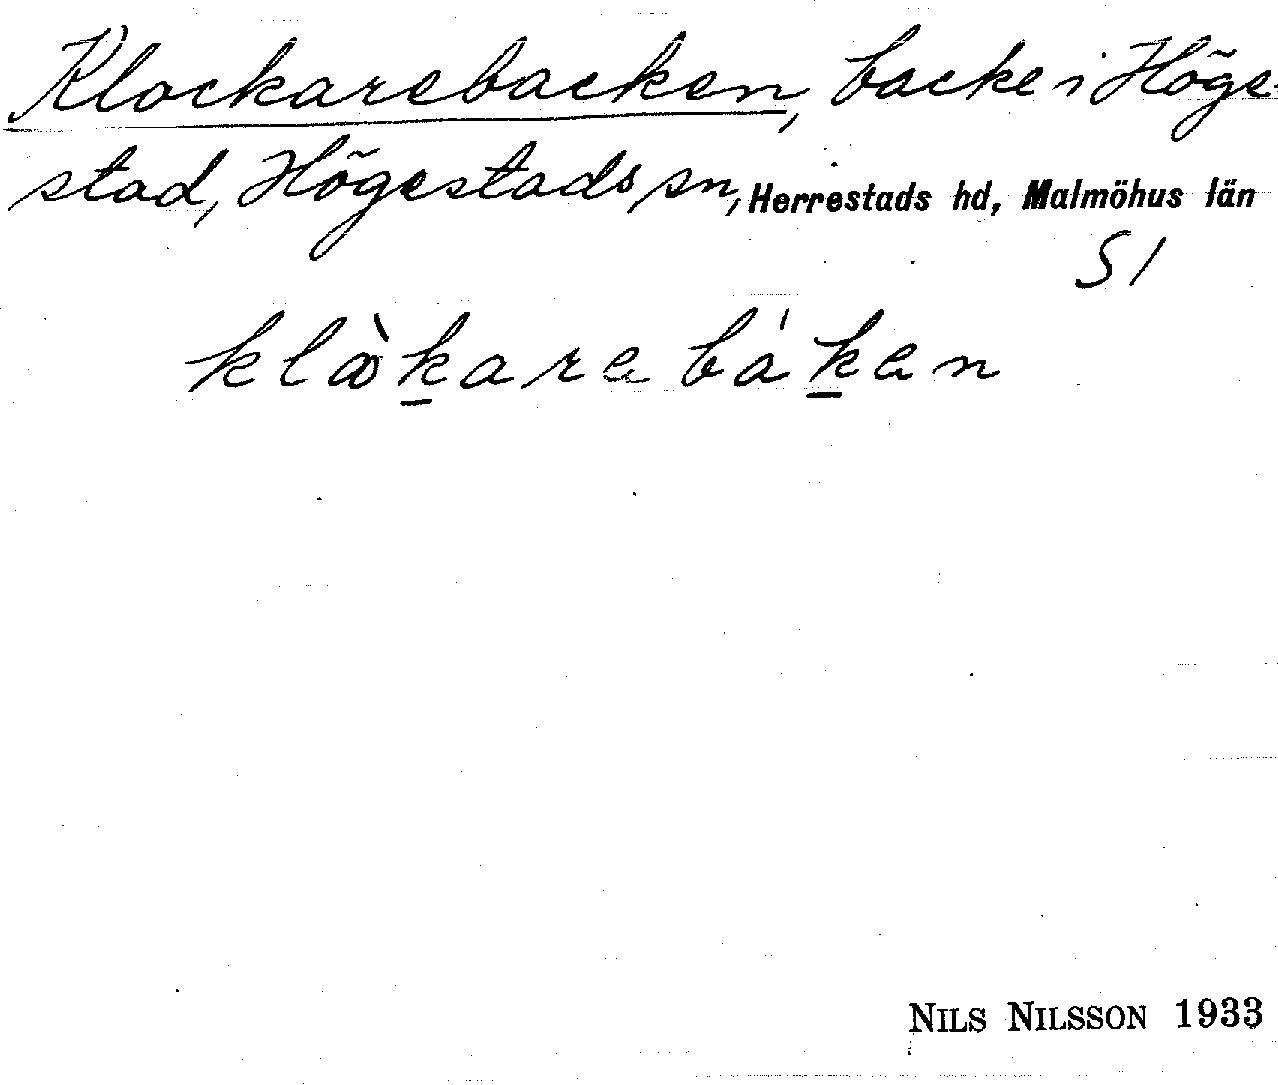 Klockarebacken, backe i Höge-
stad, Högestads sn, Herrestads hd, Malmöhus län
S1
klàkarebáken
NILS NILSSON 1933